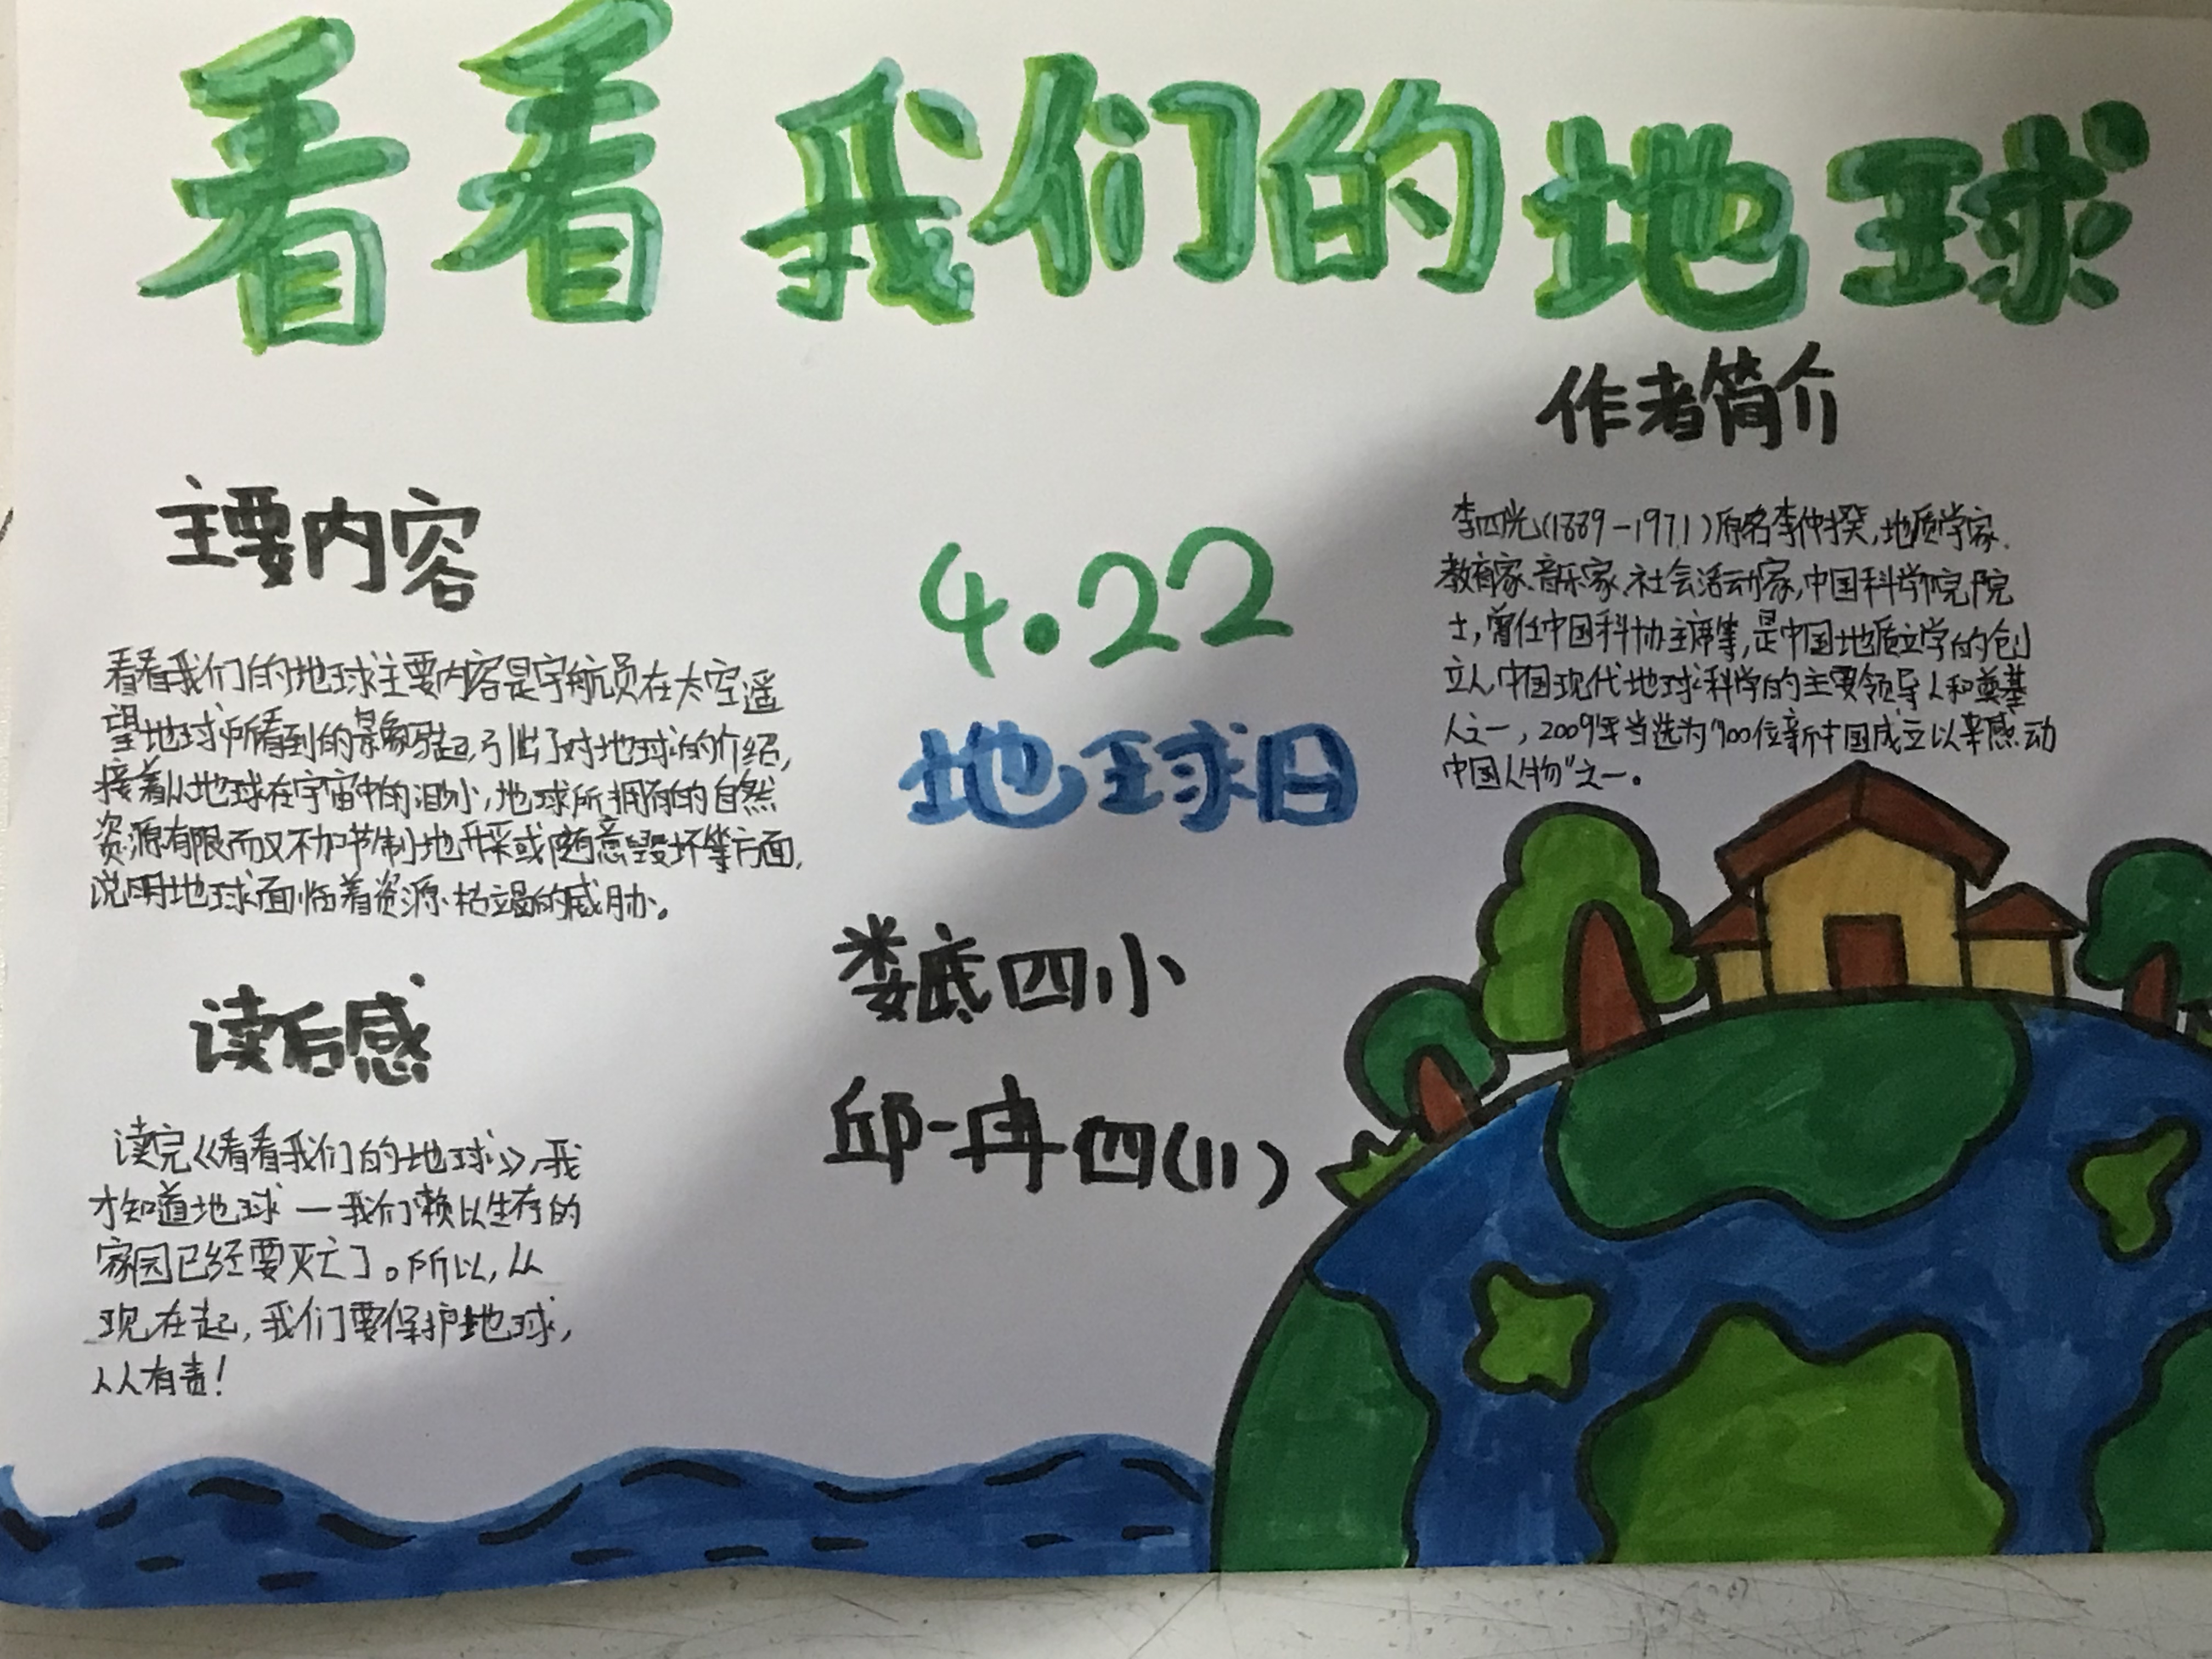 看看我们的地球
主要内容
看看我们的地球主要内容是宇航员在太空遥
望地球所看到的景象写起,引出了对地球的介绍,
接着从地球在宇宙中的渺小,地球所拥有的自然
资源有限而又不加节制地开采或随意毁坏等方面,
说明地球面临着资源枯竭的威胁。
读后感
读完《看看我们的地球》,我
才知道地球一我们赖以生存的
家园已经要灭亡了。所以,从
现在起,我们要保护地球,
人人有责!
4.22
地球日
娄底四小
邱一冉 四(11)
作者简介
李四光(1889-1971)原名李仲揆,地质学家、
教育家、音乐家、社会活动家,中国科学院院
士,曾任中国科协主席等,是中国地质力学的创
立人,中国现代地球科学的主要领导人和奠基
人之一,2009年当选为"100位新中国成立以来感动
中国人物"之一。